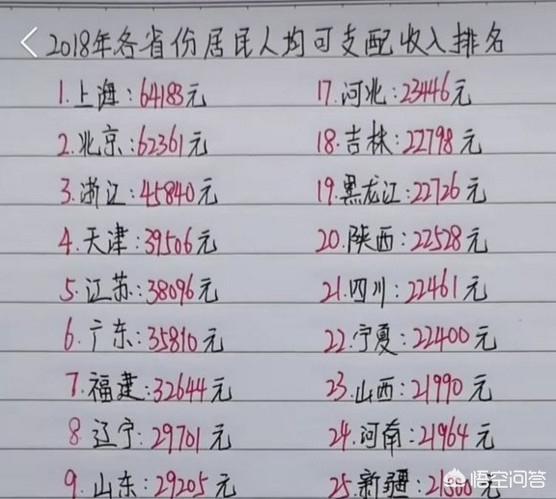 2018年各省份居民人均可支配收入排名
1.上海:64183元
2.北京:62361元
3.浙江:45840元
4.天津:39506元
5.江苏:38096元
6.广东:35810元
7.福建:32644元
8.辽宁:29701元
9.山东:29205元
17.河北:23446元
18.吉林:22798元
19.黑龙江:22726元
20.陕西:22528元
21.四川:22461元
22.宁夏:22400元
23.山西:21990元
24.河南:21964元
25.新疆:
悟空问答